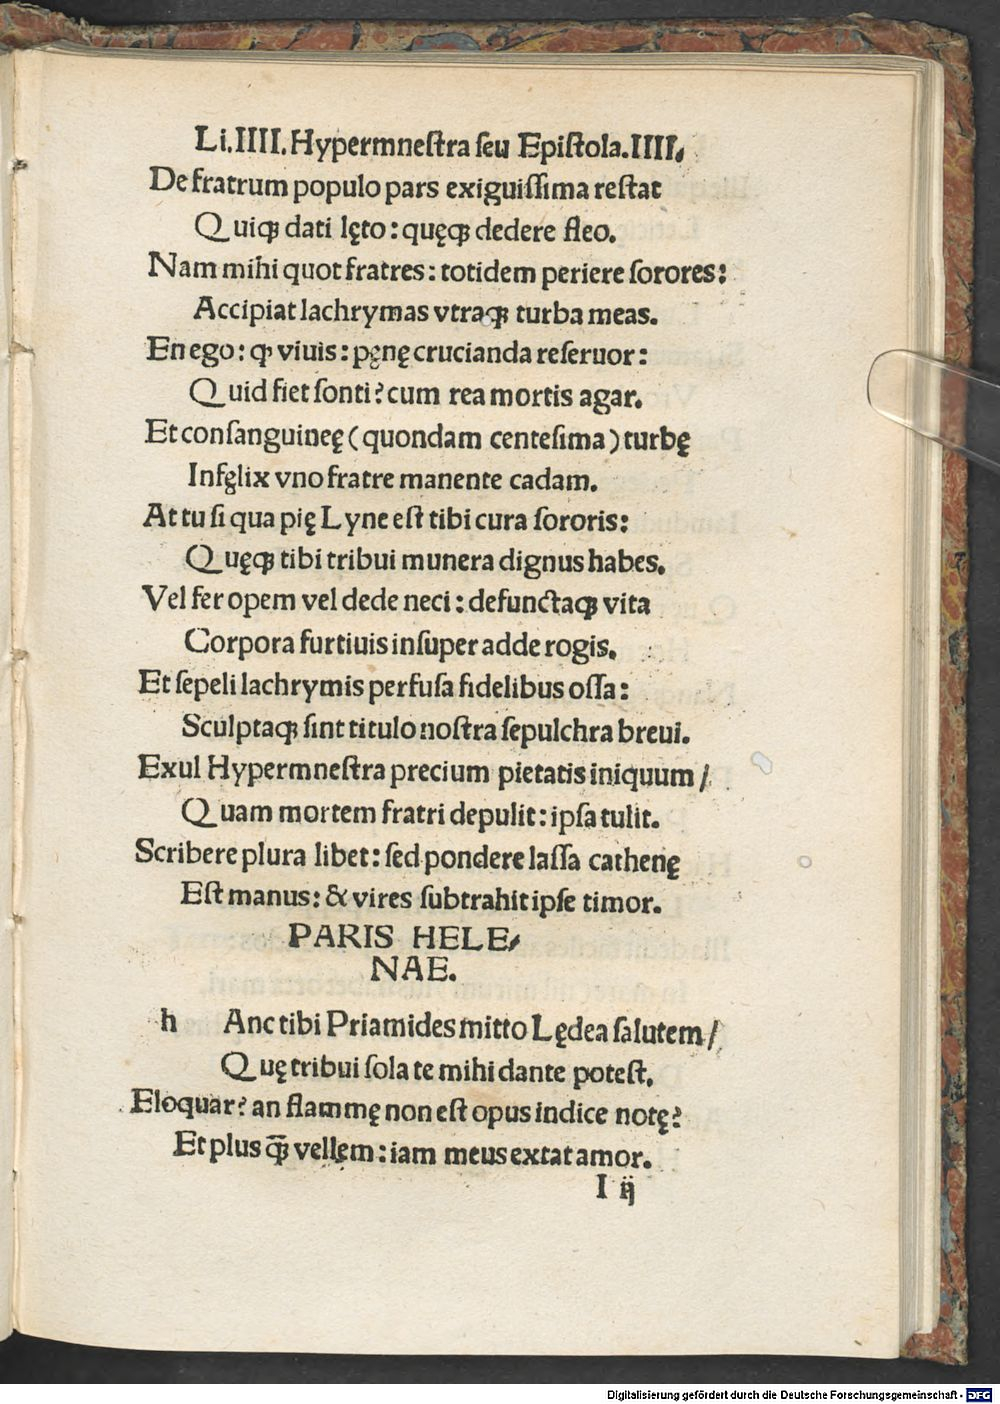 Li.IIII.Hypermneſtra ſeu Epiſtola.IIII,
De fratrum populo pars exiguiſſima reſtat
Quiqꝫ dati lęto: quęqꝫ dedere fleo.
Nam mihi quot fratres: totidem periere ſorores:
Accipiat lachrymas vtraqꝫ turba meas.
En ego: ꝙ viuis: pęnę crucianda reſeruor:
Quid fiet ſonti? cum rea mortis agar.
Et conſanguineę (quondam centeſima) turbę
Infęlix vno fratre manente cadam.
At tu ſi qua pię Lyne eſt tibi cura ſororis:
Quęqꝫ tibi tribui munera dignus habes.
Vel fer opem vel dede neci: defunctaqꝫ vita
Corpora furtiuis inſuper adde rogis.
Et ſepeli lachrymis perfuſa fidelibus oſſa:
Sculptaqꝫ ſint titulo noſtra ſepulchra breui.
Exul Hypermneſtra precium pietatis iniquum /
Quam mortem fratri depulit: ipſa tulit.
Scribere plura libet: ſed pondere laſſa cathenę
Eſt manus: & vires ſubtrahit ipſe timor.
PARIS HELE/
NAE.
h Anc tibi Priamides mitto Lędea ſalutem /
Quę tribui ſola te mihi dante poteſt.
Eloquar? an flammę non eſt opus indice notę?
Et plus qꝫ̃ vellem: iam meus extat amor.
I ij
Digitalisierung gefördert durch die Deutsche Forschungsgemeinschaft - DFG